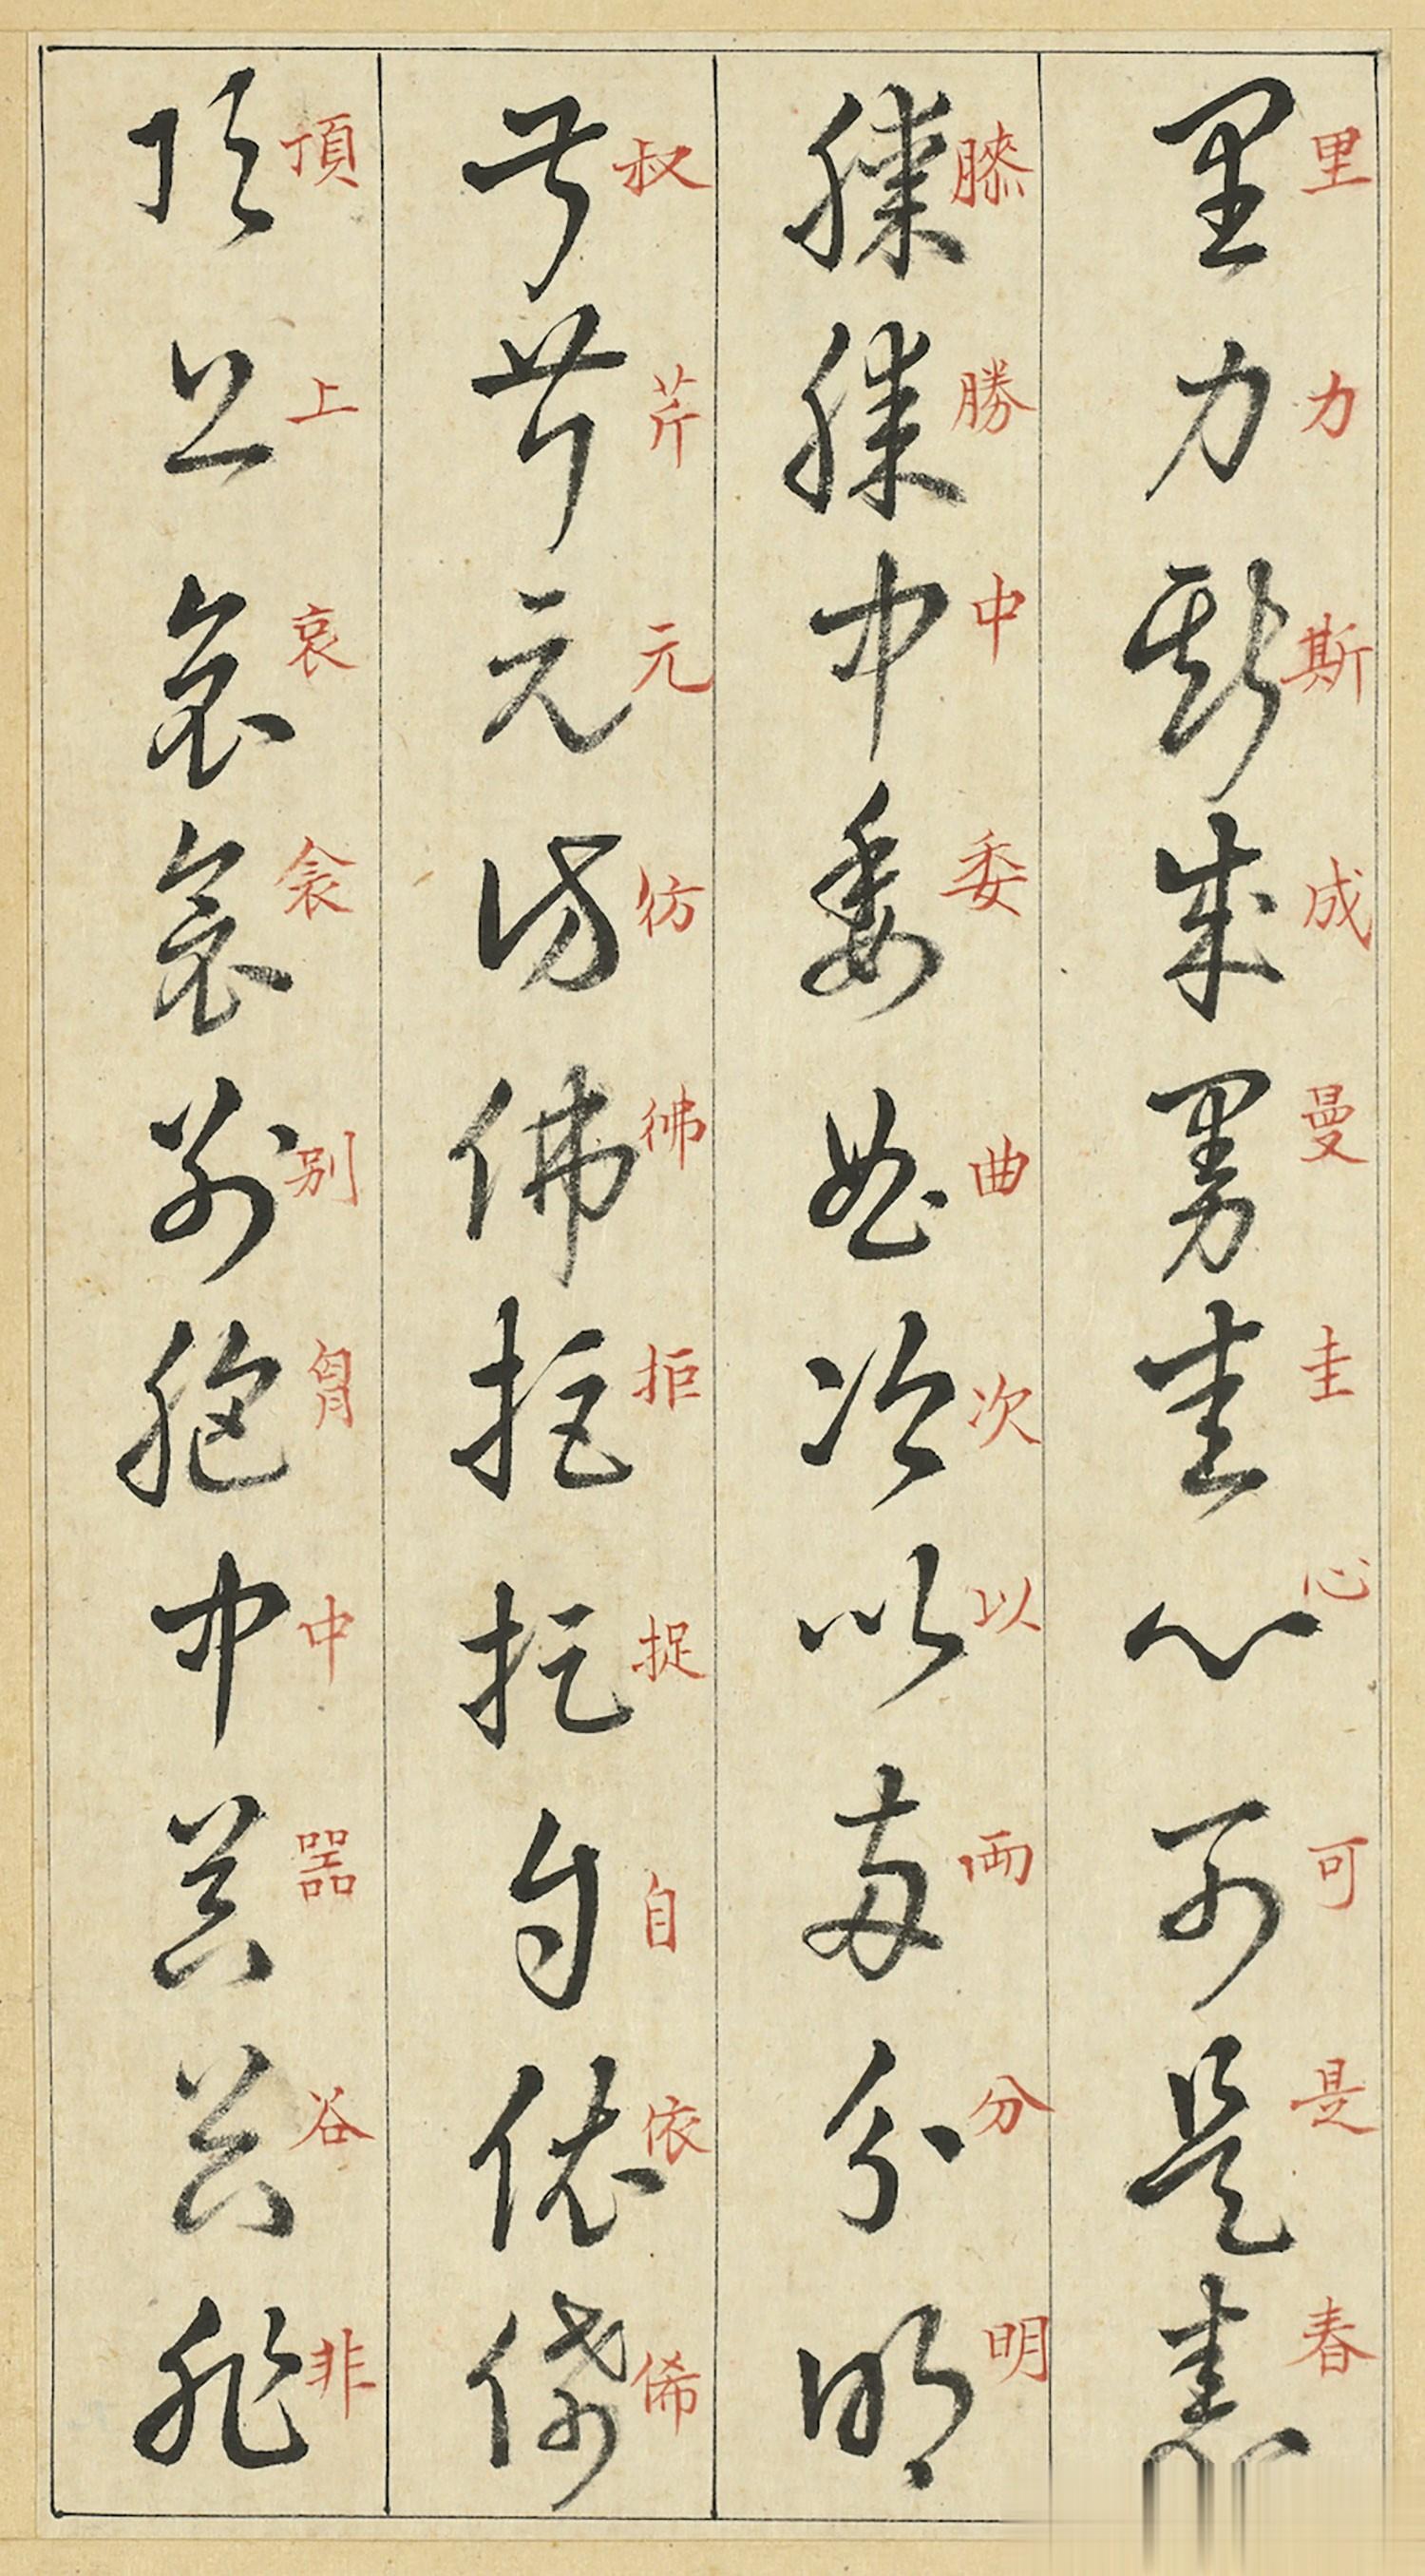 里力斯成曼圭心可是春
膝勝中委曲次以両分明
叔芹元彷彿拒捉自依俙
頂上哀衾别胷中噐谷非